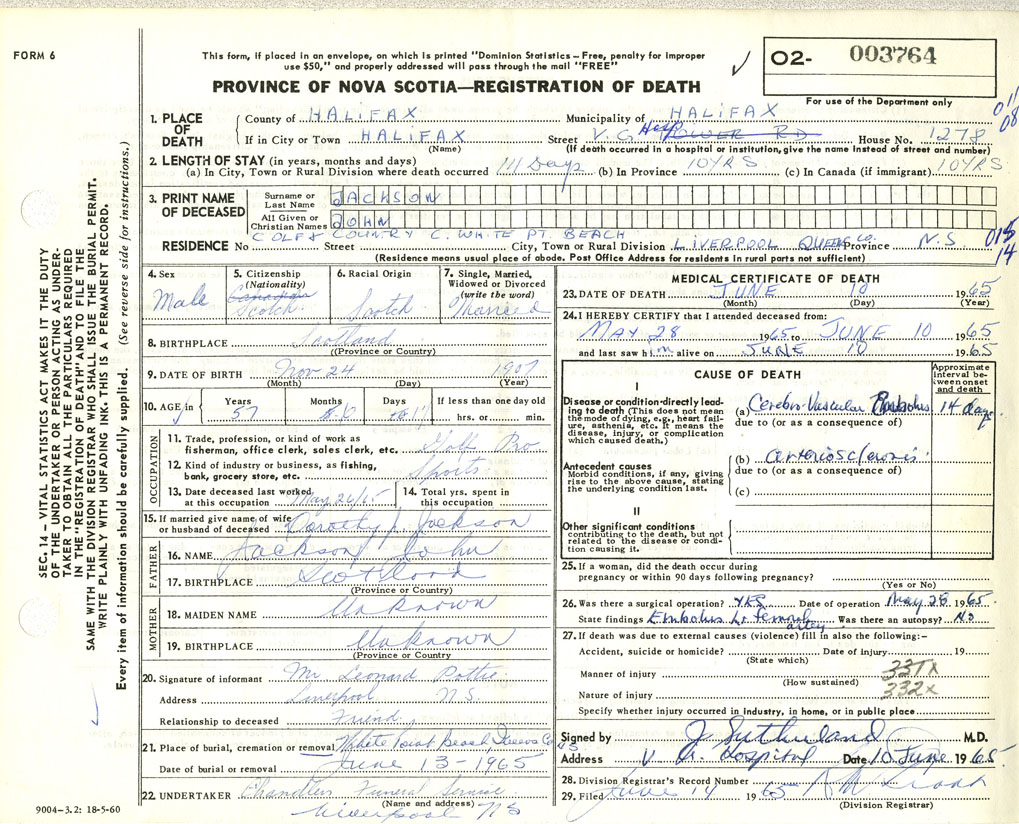 FORM 6
This form, if placed in an envelope, on which is printed "Dominion Statistics – Free, penalty for improper
use $50," and properly addressed will pass through the mail "FREE"
PROVINCE OF NOVA SCOTIA—REGISTRATION OF DEATH
O2- 003764
For use of the Department only
011
08
1. PLACE OF DEATH
County of HALIFAX Municipality of HALIFAX
If in City or Town HALIFAX Street V. G. Hosp TOWER RD House No. 1278
(Name) (If death occurred in a hospital or institution, give the name instead of street and number)
2. LENGTH OF STAY (in years, months and days)
(a) In City, Town or Rural Division where death occurred Days (b) In Province 10 YRS (c) In Canada (if immigrant) 10 YRS
3. PRINT NAME OF DECEASED
Surname or Last Name JACKSON
All Given or Christian Names JOHN
GOLF & COUNTRY C. WHITE PT. BEACH
RESIDENCE No Street City, Town or Rural Division LIVERPOOL QUEENS Co. Province N.S.
(Residence means usual place of abode. Post Office Address for residents in rural parts not sufficient)
14
4. Sex Male
5. Citizenship (Nationality) Canadian Scotch
6. Racial Origin Scotch
7. Single, Married, Widowed or Divorced (write the word) Married
8. BIRTHPLACE Scotland
(Province or Country)
9. DATE OF BIRTH Nov 24 1907
(Month) (Day) (Year)
10. AGE in Years 57 Months 6 Days 17 If less than one day old hrs. or min.
OCCUPATION
11. Trade, profession, or kind of work as fisherman, office clerk, sales clerk, etc. Golf Pro
12. Kind of industry or business, as fishing, bank, grocery store, etc. Sports
13. Date deceased last worked at this occupation May 26/65
14. Total yrs. spent in this occupation
15. If married give name of wife or husband of deceased Dorothy L. Jackson
FATHER
16. NAME Jackson John
17. BIRTHPLACE Scotland
(Province or Country)
MOTHER
18. MAIDEN NAME Unknown
19. BIRTHPLACE Unknown
(Province or Country)
20. Signature of informant Mr. Leonard Pottie
Address Liverpool N.S.
Relationship to deceased Friend
21. Place of burial, cremation or removal White Point Beach Queens Co N.S.
Date of burial or removal June 13-1965
22. UNDERTAKER Chandlers Funeral Service
(Name and address)
Liverpool NS
MEDICAL CERTIFICATE OF DEATH
23. DATE OF DEATH JUNE 10 1965
(Month) (Day) (Year)
24. I HEREBY CERTIFY that I attended deceased from:
MAY 28 1965 to JUNE 10 1965
and last saw him alive on JUNE 10 1965
CAUSE OF DEATH
Approximate interval between onset and death
I
Disease or condition directly leading to death (This does not mean the mode of dying, e.g., heart failure, asthenia, etc. It means the disease, injury, or complication which caused death.)
(a) Cerebro-Vascular Embolus 14 days
due to (or as a consequence of)
Antecedent causes
Morbid conditions, if any, giving rise to the above cause, stating the underlying condition last.
(b) arteriosclerosis
due to (or as a consequence of)
(c)
II
Other significant conditions contributing to the death, but not related to the disease or condition causing it.
25. If a woman, did the death occur during pregnancy or within 90 days following pregnancy?
(Yes or No)
26. Was there a surgical operation? YES Date of operation May 28 1965
State findings Embolus Lt femoral artery Was there an autopsy? No
27. If death was due to external causes (violence) fill in also the following:–
Accident, suicide or homicide? Date of injury 19
(State which)
Manner of injury 331X
(How sustained)
332X
Nature of injury
Specify whether injury occurred in industry, in home, or in public place
Signed by J Sutherland M.D.
Address V. G. Hospital Date 10 June 1965
28. Division Registrar's Record Number
29. Filed June 14 1965
(Division Registrar)
SEC. 14 – VITAL STATISTICS ACT MAKES IT THE DUTY
OF THE UNDERTAKER OR PERSON ACTING AS UNDER-
TAKER TO OBTAIN ALL THE PARTICULARS REQUIRED
IN THE "REGISTRATION OF DEATH" AND TO FILE THE
SAME WITH THE DIVISION REGISTRAR WHO SHALL ISSUE THE BURIAL PERMIT.
WRITE PLAINLY WITH UNFADING INK. THIS IS A PERMANENT RECORD.
Every item of information should be carefully supplied. (See reverse side for instructions.)
9004–3.2: 18-5-60